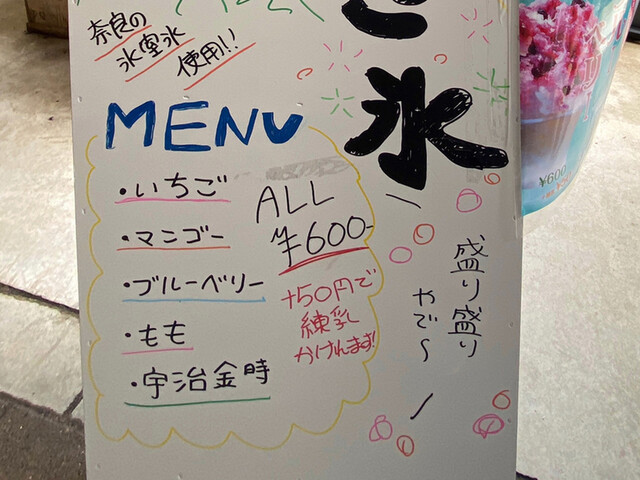 奈良の
氷室氷
使用!!
氷
MENU
・いちご
・マンゴー
・ブルーベリー
・もも
・宇治金時
ALL
¥600-
+50円で
練乳
かけれます!
盛り盛り
やで〜
¥600